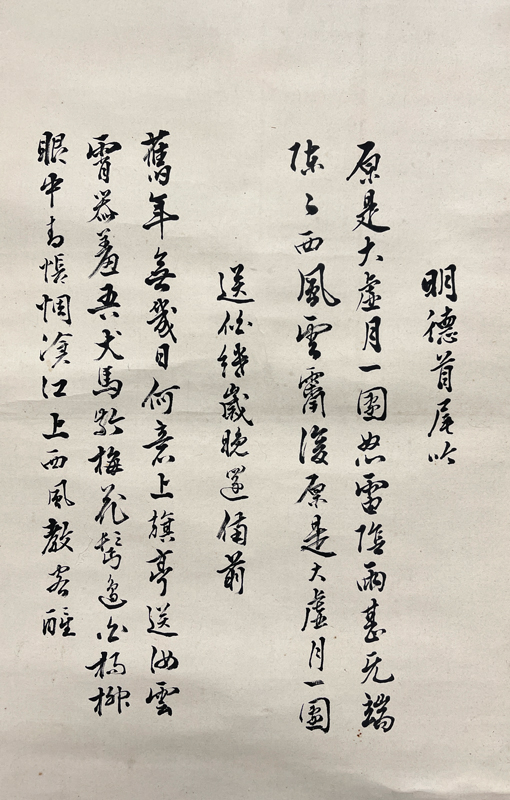 明德首尾吟
原是大虛月一團怒雷陰雨甚无端
陣〻西風雲霽後原是大虛月一團
送伯繼歲晚還備前
舊年無幾日何意上旗亭送汝雲
霄器羞吾犬馬齡梅花髩邊白楊柳
眼中青悵惆滄江上西風教客醒